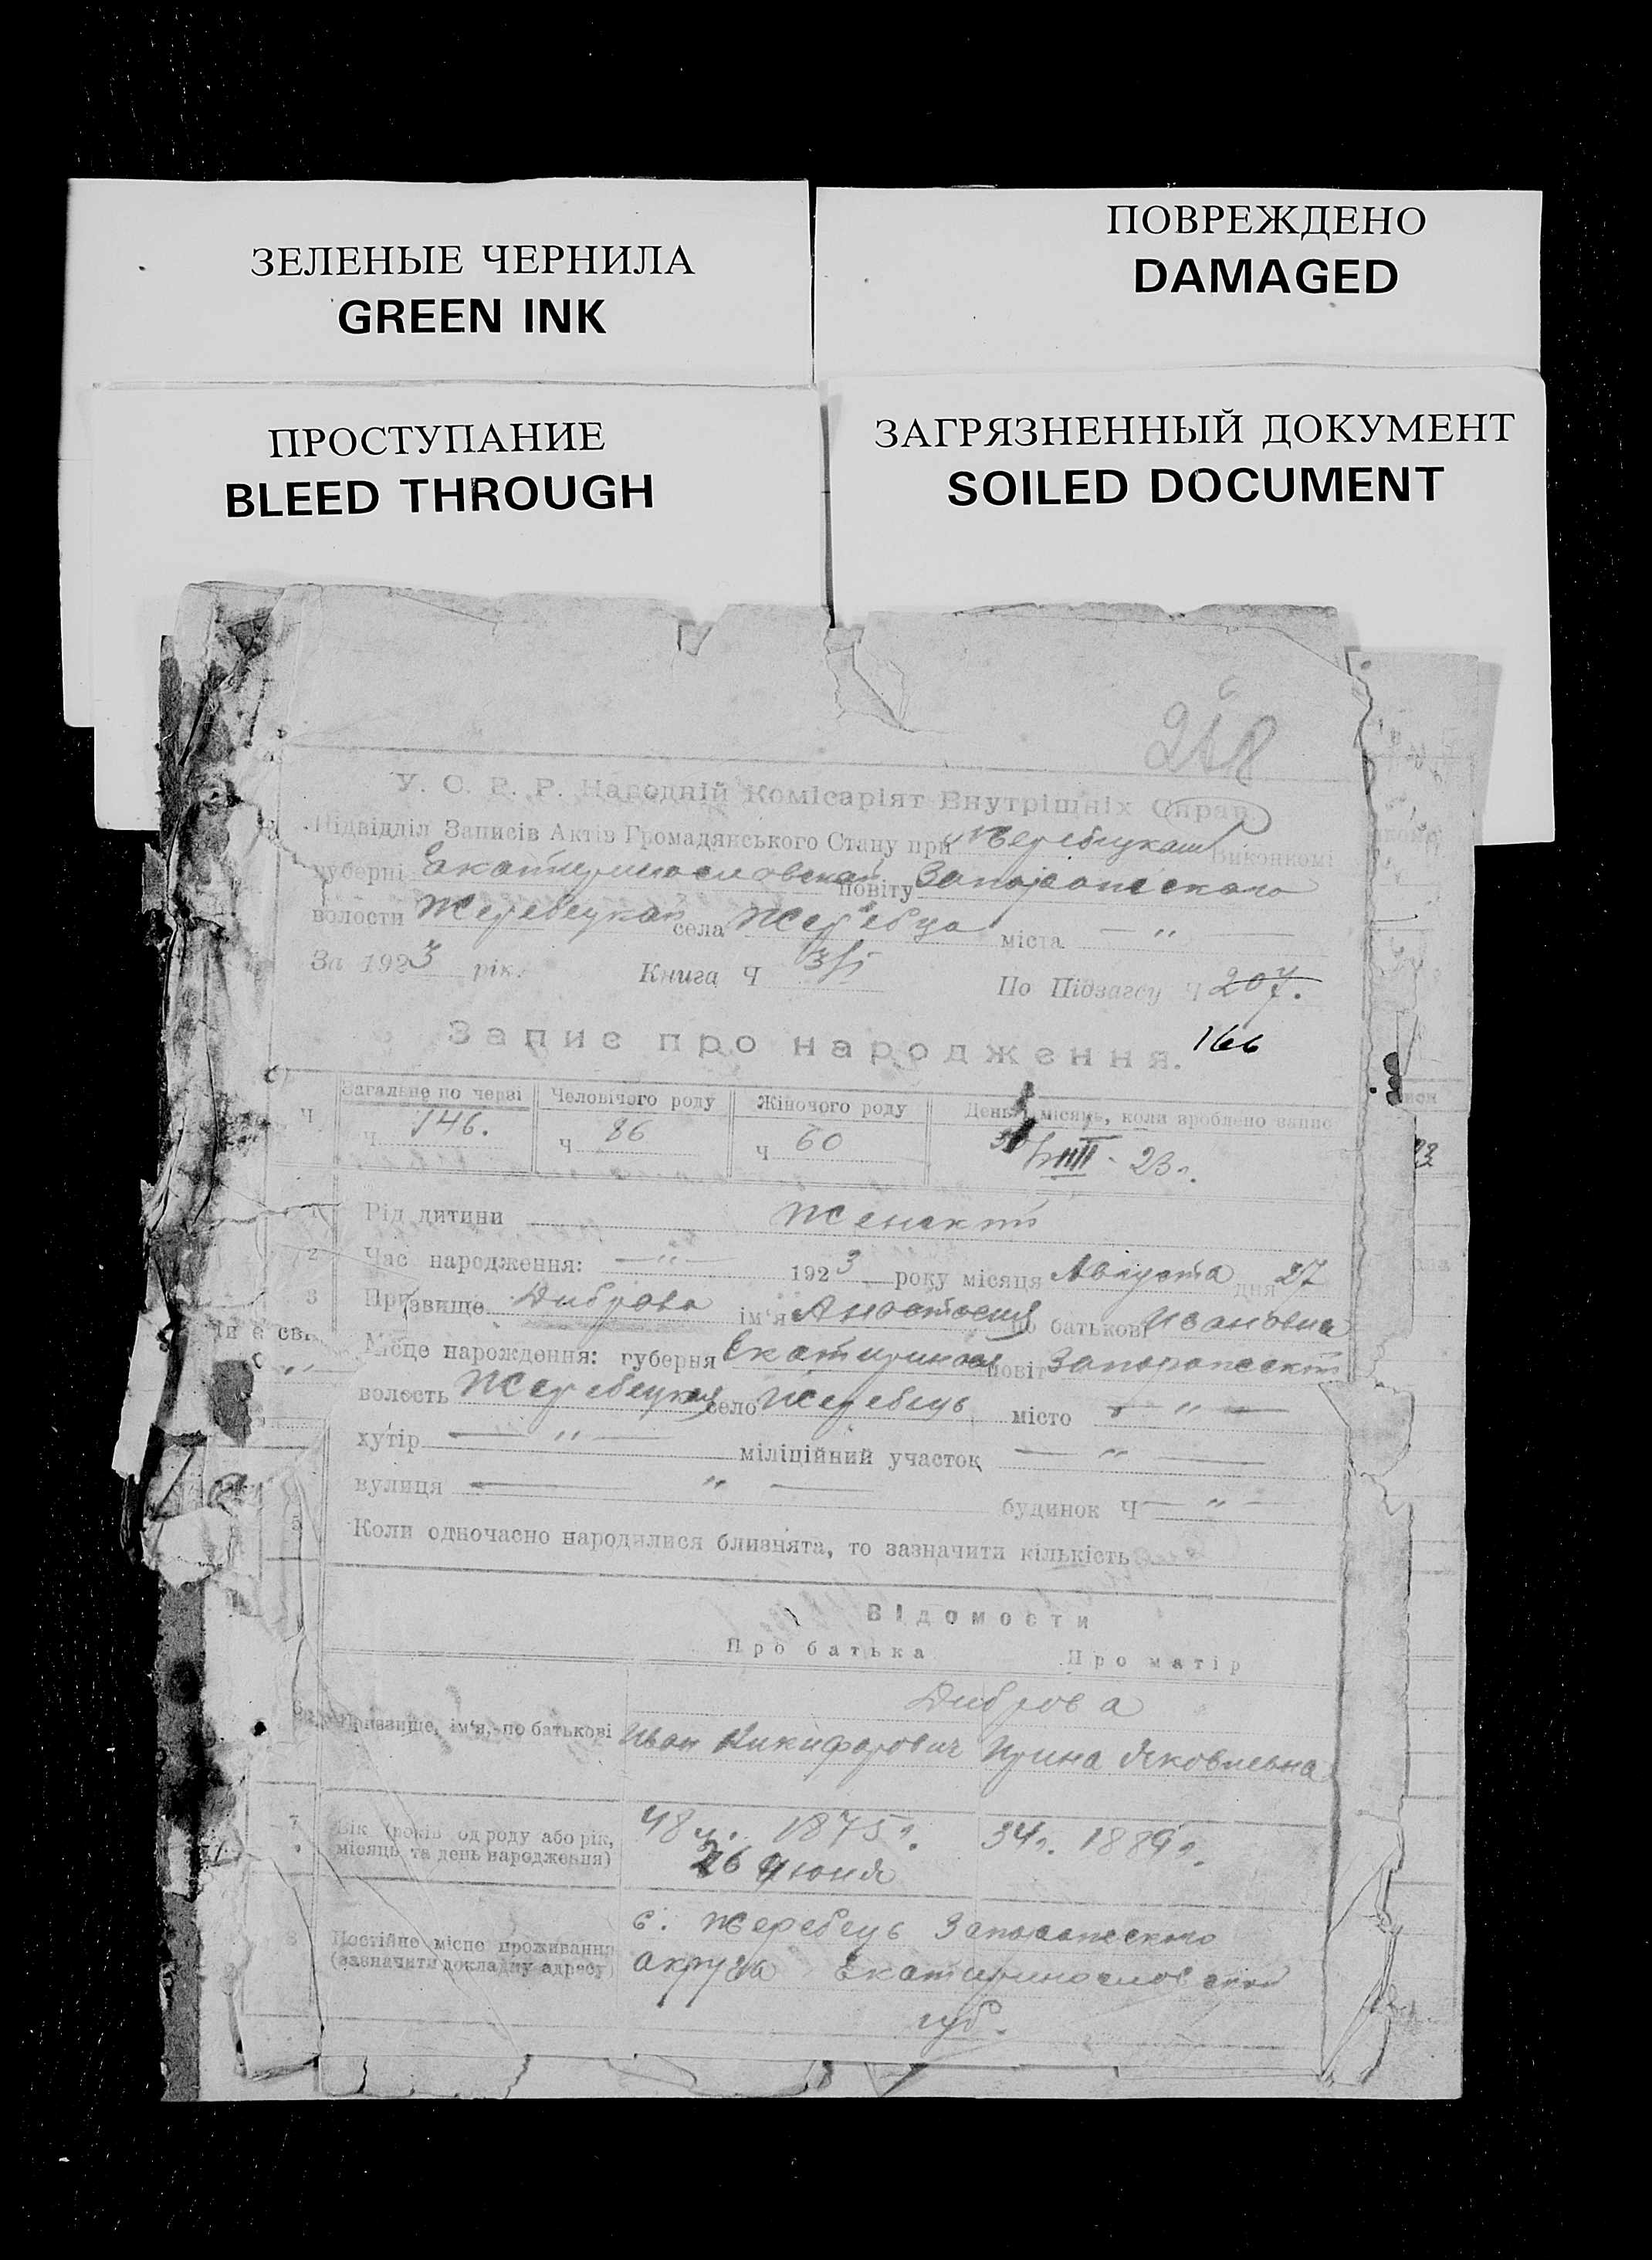 ЗЕЛЕНЫЕ ЧЕРНИЛА
GREEN INK
ПОВРЕЖДЕНО
DAMAGED
ПРОСТУПАНИЕ
BLEED THROUGH
ЗАГРЯЗНЕННЫЙ ДОКУМЕНТ
SOILED DOCUMENT
У. С. Р. Р. Народній Комісаріят Внутрішніх Справ.
Підвідділ Записів Актів Громадянського Стану при Жеребецкаи Виконкомі
губерні Екатеринославскай повіту Запорожскаго
волости Жеребецкай села Жеребца міста — " —
За 1923 рік. Книга Ч По Підзагсу Ч 207.
Запис про народження. 166
Ч Загальне по черві Человічого роду Жіночого роду День і місяць, коли зроблено запис
Ч 146. Ч 86 Ч 60 VIII - 23 г.
1 Рід дитини Женскій
2 Час народження: — " — 1923 року місяця Августа дня 27
3 Призвище Диброва ім'я Анастасия по батькові Ивановна
Місце нарождення: губерня Екатеринос повіт Запорожскій
волость Жеребецкая село Жеребець місто — " —
хутір — " — міліційний участок — " —
вулиця — " — будинок Ч — " —
5 Коли одночасно народилися близнята, то зазначити кількість
Відомости
Про батька Про матір
Диброва
Призвище, ім'я, по батькові Иван Никифорович Ирина Яковлевна
7 Вік (років од роду або рік, місяць та день народження) 48 л. 1875 г. 34 г. 1889 г.
26 Июня
8 Постійне місце проживання (зазначити докладну адресу) с. Жеребець Запорожскаго
акруга Екатеринославской
губ.